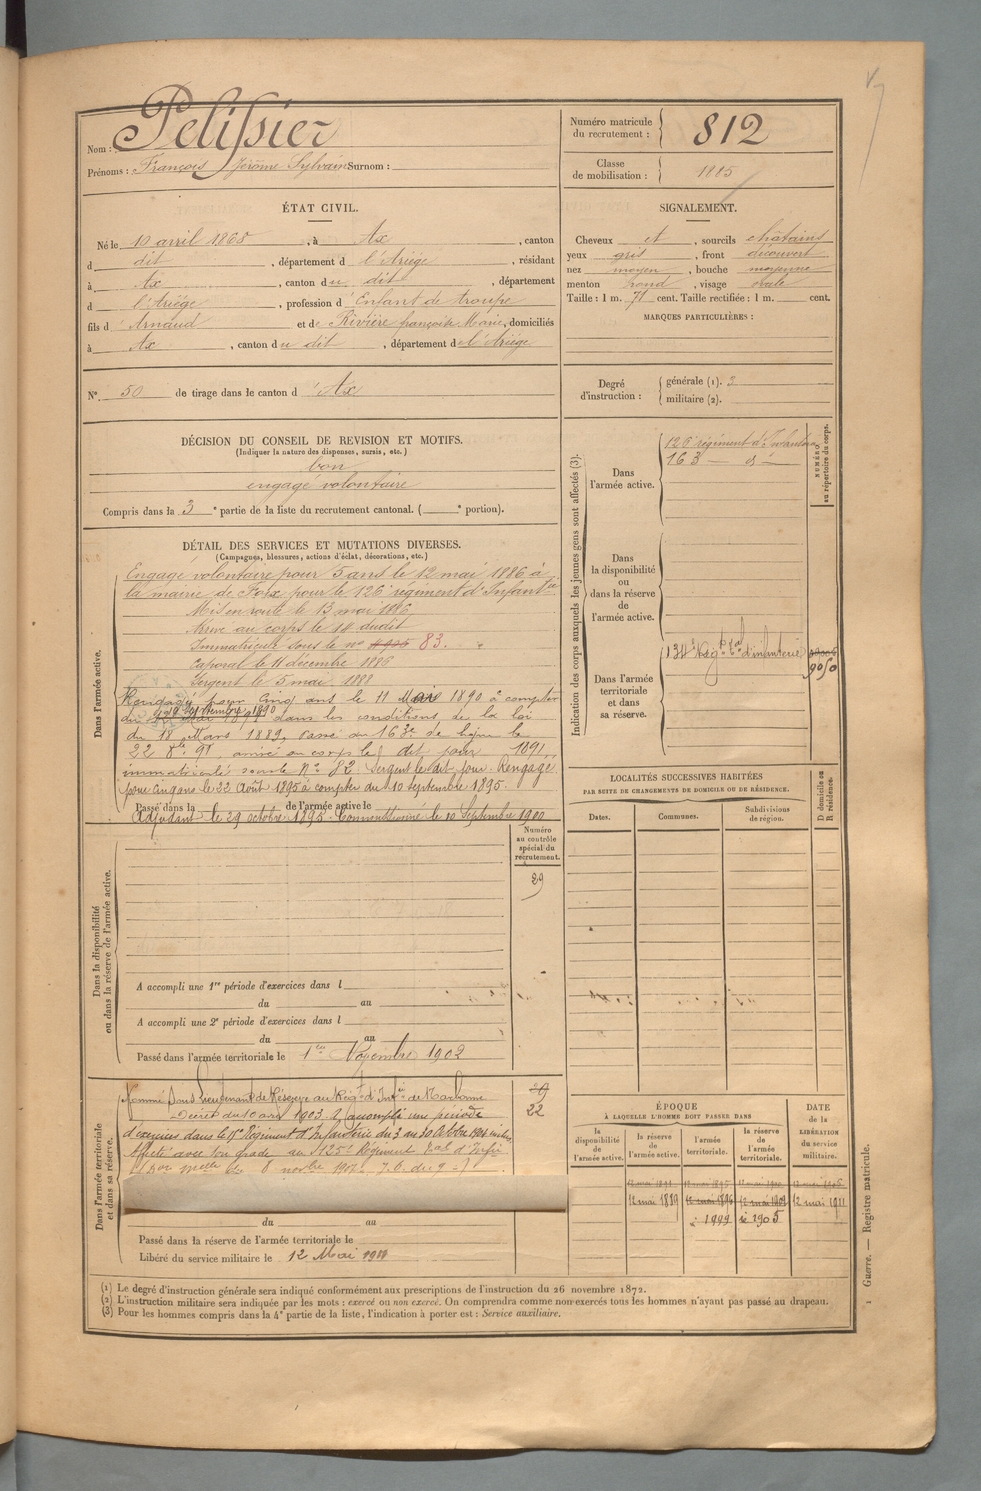 Nom : Pelissier
Prénoms : François Jérôme Sylvain Surnom :
Numéro matricule du recrutement : 812
Classe de mobilisation : 1885
ÉTAT CIVIL.
Né le 10 avril 1865, à Ax, canton
d dit, département d l'Ariège, résidant
à Ax, canton du dit, département
d l'Ariège, profession d'Enfant de troupe
fils d'Arnaud et de Rivière françoise Marie, domiciliés
à Ax, canton du dit, département de l'Ariège
SIGNALEMENT.
Cheveux et, sourcils châtains
yeux gris, front découvert
nez moyen, bouche moyenne
menton rond, visage ovale
Taille : 1 m. 71 cent. Taille rectifiée : 1 m. cent.
MARQUES PARTICULIÈRES :
N° 50 de tirage dans le canton d'Ax
Degré d'instruction : générale (1). 3
militaire (2).
DÉCISION DU CONSEIL DE REVISION ET MOTIFS.
(Indiquer la nature des dispenses, sursis, etc.)
bon
engagé volontaire
Compris dans la 3e partie de la liste du recrutement cantonal. (e portion).
DÉTAIL DES SERVICES ET MUTATIONS DIVERSES.
(Campagnes, blessures, actions d'éclat, décorations, etc.)
Dans l'armée active.
Engagé volontaire pour 5 ans le 12 mai 1886 à
la mairie de Foix pour le 126e régiment d'Infantie
Mis en route le 13 mai 1886
Arrivé au corps le 14 dudit
Immatriculé sous le n° 83.
Caporal le 11 décembre 1886
Sergent le 5 mai 1888
Rengagé pour cinq ans le 11 Mai 1890 à compter
du dans les conditions de la loi
du 18 Mars 1889, Passé au 163e de ligne le
22 8bre 91, arrivé au corps le dit jour 1891,
immatriculé sous le N° 82. Sergent le dit jour. Rengagé
pour cinq ans le 22 Août 1895 à compter du 10 septembre 1895.
Passé dans la de l'armée active le
Adjudant le 29 octobre 1895. Commissionné le 10 Septembre 1900
Indication des corps auxquels les jeunes gens sont affectés (3).
NUMÉRO au répertoire du corps.
Dans l'armée active.
126e régiment d'Infanterie
163 — d° —
Dans la disponibilité ou dans la réserve de l'armée active.
Dans l'armée territoriale et dans sa réserve.
134e Régt Tal d'infanterie
9050
LOCALITÉS SUCCESSIVES HABITÉES
PAR SUITE DE CHANGEMENTS DE DOMICILE OU DE RÉSIDENCE.
Dates. Communes. Subdivisions de région. D domicile ou R résidence.
Numéro au contrôle spécial du recrutement.
29
Dans la disponibilité ou dans la réserve de l'armée active.
A accompli une 1re période d'exercices dans l
du au
A accompli une 2e période d'exercices dans l
du au
Passé dans l'armée territoriale le 1er Novembre 1902
Dans l'armée territoriale et dans sa réserve.
Nommé Sous Lieutenant de Réserve au Régt d'Infie de Narbonne
Décret du 10 avril 1903. A accompli une période
d'exercices dans le Régiment d'Infanterie du 3 au 30 Octobre 1904 inclus
Affecté avec son grade au 125e Régiment Tal d'Infie
22
du au
Passé dans la réserve de l'armée territoriale le
Libéré du service militaire le 12 Mai 1911
ÉPOQUE
À LAQUELLE L'HOMME DOIT PASSER DANS
la disponibilité de l'armée active. la réserve de l'armée active. l'armée territoriale. la réserve de l'armée territoriale.
DATE de la LIBÉRATION du service militaire.
12 mai 1889 12 mai 1896 12 mai 1902 12 mai 1911
1899 1905
(1) Le degré d'instruction générale sera indiqué conformément aux prescriptions de l'instruction du 26 novembre 1872.
(2) L'instruction militaire sera indiquée par les mots : exercé ou non exercé. On comprendra comme non exercés tous les hommes n'ayant pas passé au drapeau.
(3) Pour les hommes compris dans la 4e partie de la liste, l'indication à porter est : Service auxiliaire.
Guerre. — Registre matricule.